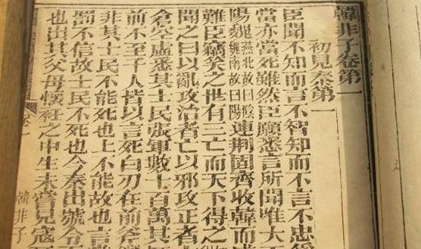 韓非子卷第一
初見秦第一
臣聞不知而言不智知而不言不忠
當亦當死雖然臣願悉言所聞唯大
陽燕北故曰陰南故曰陽連荊固齊收韓而
難臣竊笑之世有三亡而天下得之
聞之曰以亂攻治者亡以邪攻正者
倉空虛悉其士民張軍數十百萬其
前不至千人皆以言死白刃在前斧
非其士民不能死也上不能故也言
罰不信故士民不死也今秦出號令
也出其父母懷衽之中生未嘗見寇
韓非子